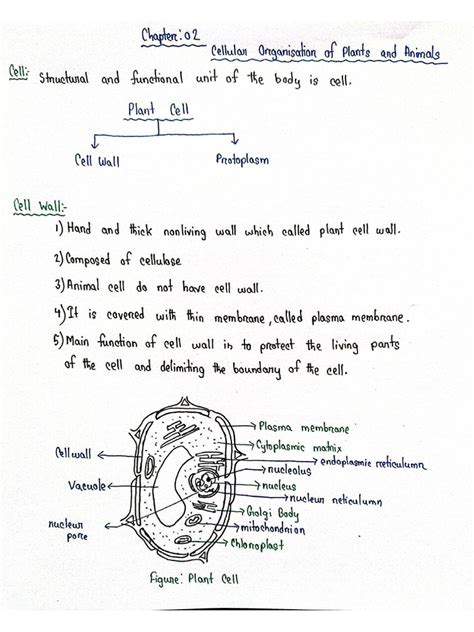 Chapter: 02
Cellular Organisation of Plants and Animals
Cell:- Structural and functional unit of the body is cell.
Plant Cell
Cell Wall
Protoplasm
Cell Wall:-
1) Hard and thick nonliving wall which called plant cell wall.
2) Composed of cellulose
3) Animal cell do not have cell wall.
4) It is covered with thin membrane, called plasma membrane.
5) Main function of cell wall is to protect the living parts
of the cell and delimiting the boundary of the cell.
Plasma membrane
Cytoplasmic matrix
Cell wall
endoplasmic reticulumn
nucleolus
Vacuole
nucleus
nucleur reticulumn
Golgi Body
nucleur
pore
mitochondrion
Chloroplast
Figure: Plant Cell